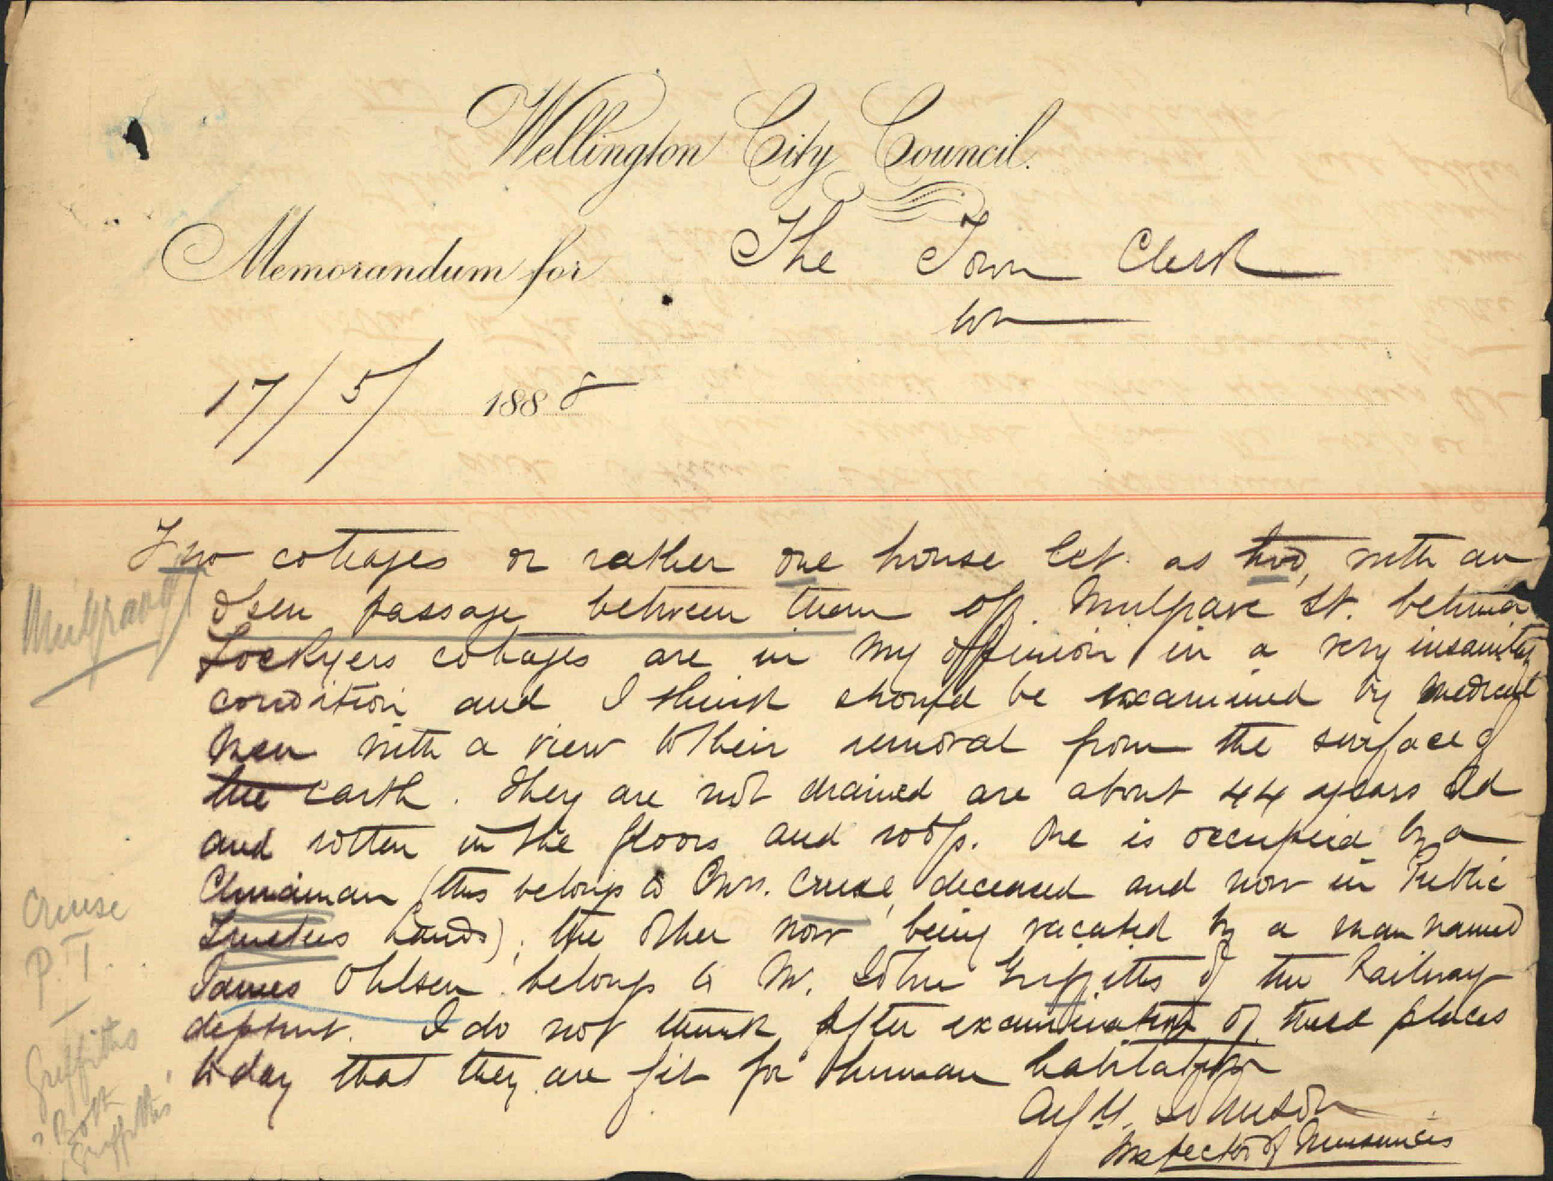 Wellington City Council.
Memorandum for The Town Clerk
Wn
17/5/ 1888
Two cottages or rather one house let as two, with an
open passage between them off Mulgrave St. behind
Mulgrave St
Lockyers cottages are in my oppinion in a very insanitary
condition and I think should be examined by medical
men with a view to their removal from the surface of
the earth. They are not drained are about 44 years old
and rotten in the floors and roofs. One is occupied by a
Chinaman (this belongs to Mrs. Cruse, deceased and now in Public
Cruse
Trustees hands), the other now being vacated by a man named
P.T.
James Ohlsen belongs to Mr. John Griffiths of the Railway
deptmt. I do not think after examination of these places
Griffiths
today that they are fit for human habitation
? Both
Griffiths
Johnson
Inspector of Nuisances